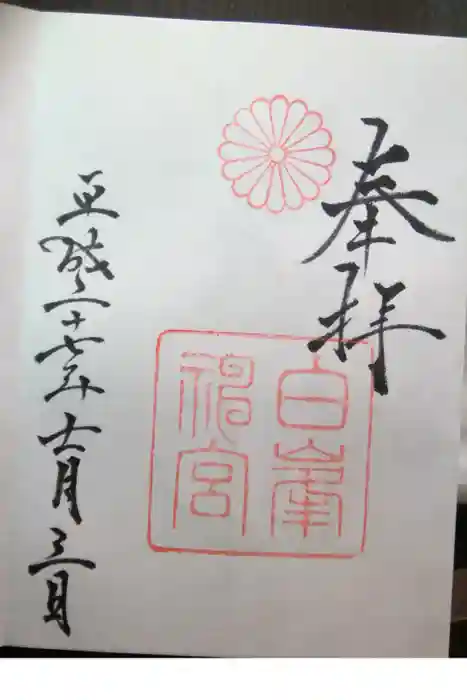 奉拝
白峯
神宮
平成二十七年十一月三日